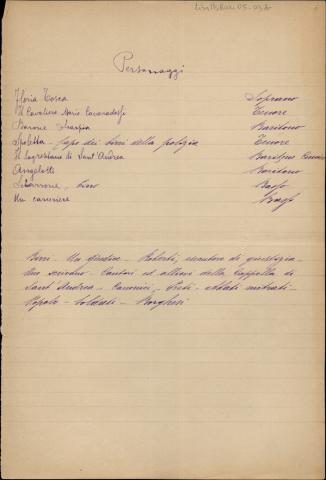 Personaggi
Floria Tosca Soprano
Il Cavaliere Mario Cavaradossi Tenore
Barone Scarpia Baritono
Spoletta - Capo dei birri della polizia Tenore
Il Sagrestano di Sant'Andrea Baritono
Angelotti Baritono
Sciarrone, birro Basso
Un carceriere Basso
Birri - Un Giudice - Roberti, esecutore di giustizia -
Uno scrivano - Cantori ed allievi della Cappella di
Sant'Andrea - Canonici - Preti - Abati mitrati -
Popolo - Soldati - Borghesi